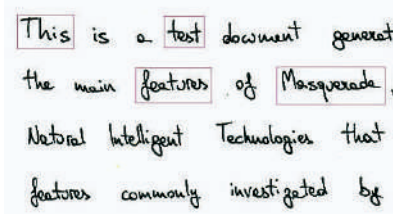 This is a test document generat
the main features of Masquerade,
Natural Intelligent Technologies that
features commonly investigated by